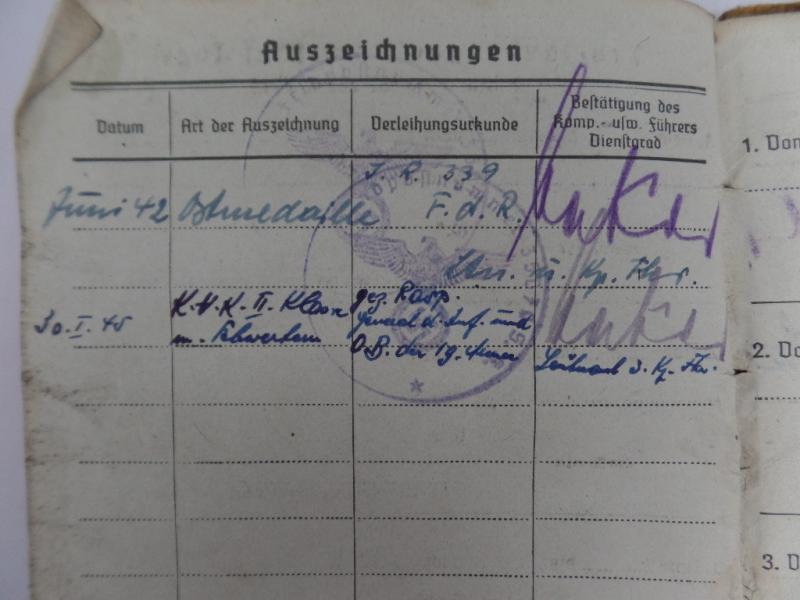 Auszeichnungen
Datum
Art der Auszeichnung
Verleihungsurkunde
Bestätigung des
Komp.- usw. Führers
Dienstgrad
Juni 42
Ostmedaille
J. R. 339
F. d. R.
Ltn. u. Kp. Fhr.
30. I. 45
K.V.K. II. Klasse
m. Schwertern
gez. Rasp.
General d. Inf. und
O.B. der 19. Armee
Leutnant u. Kp. Fhr.
1. Von
2. Vo
3. D